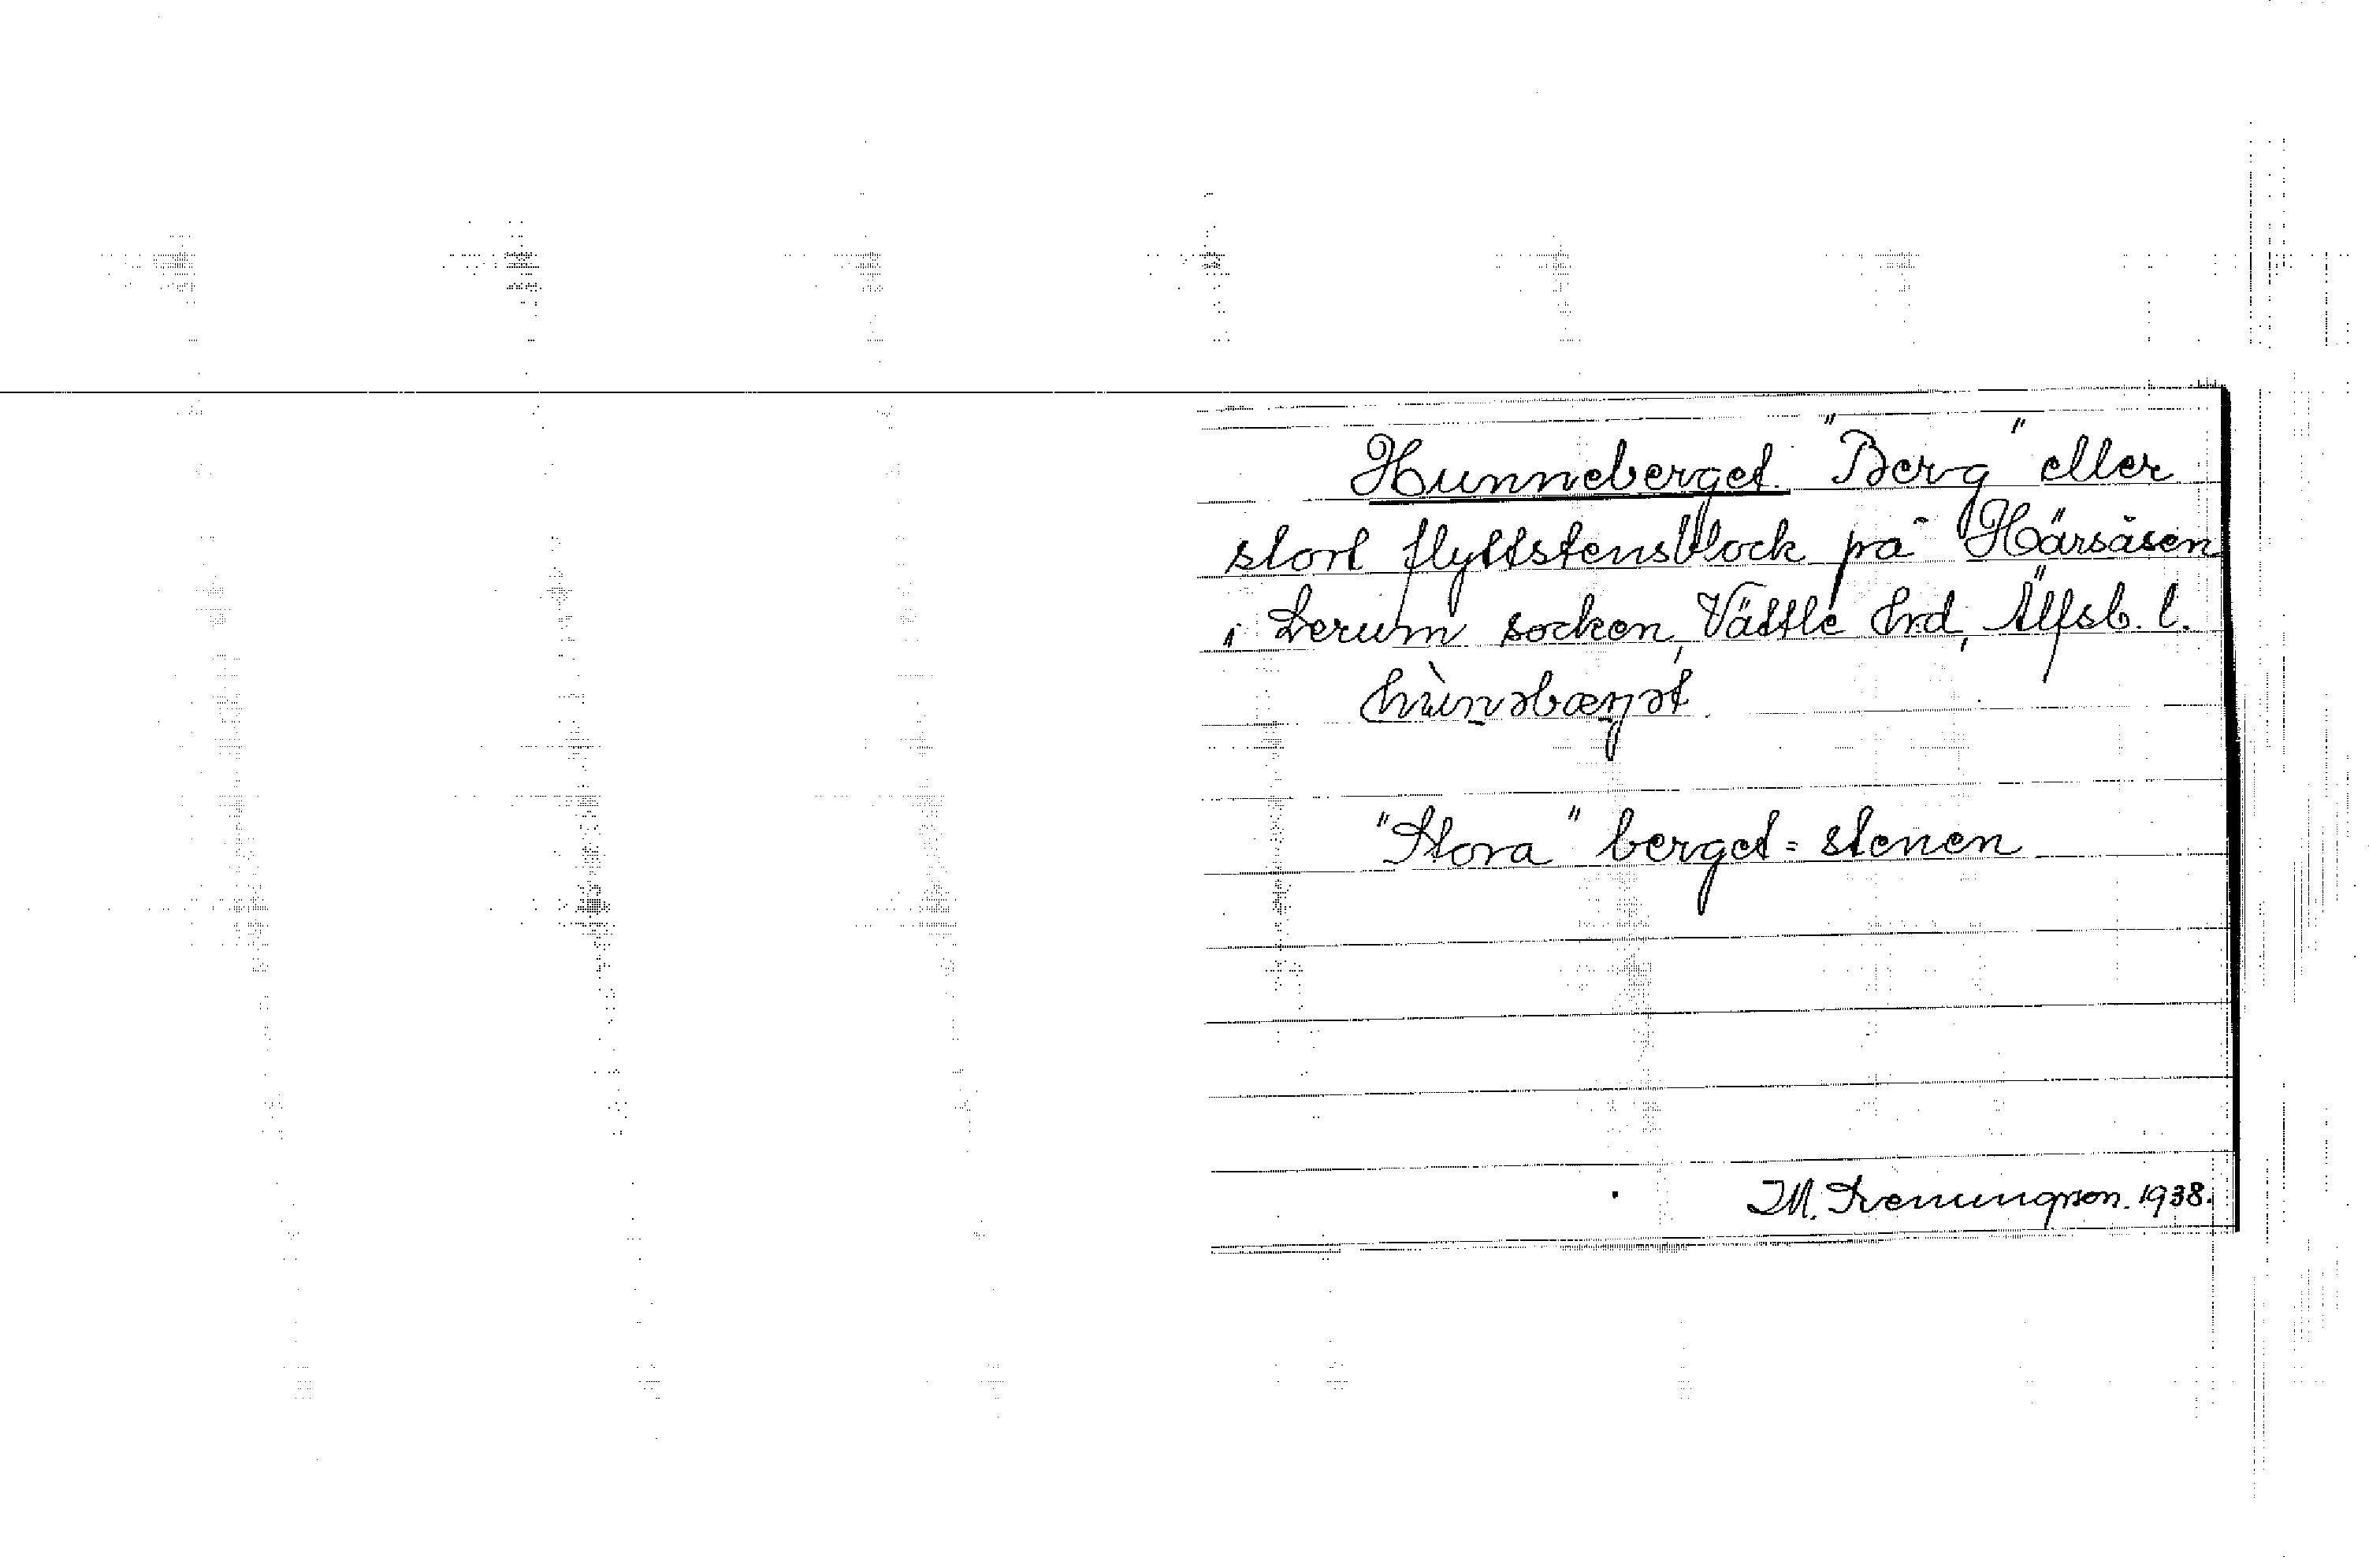 Hunneberget. "Berg" eller
stort flyttstensblock på Härsåsen
i Lerum socken, Vättle hrd, Älfsb. l.
hùnəbæŋət.
"Stora" berget = stenen
1938.